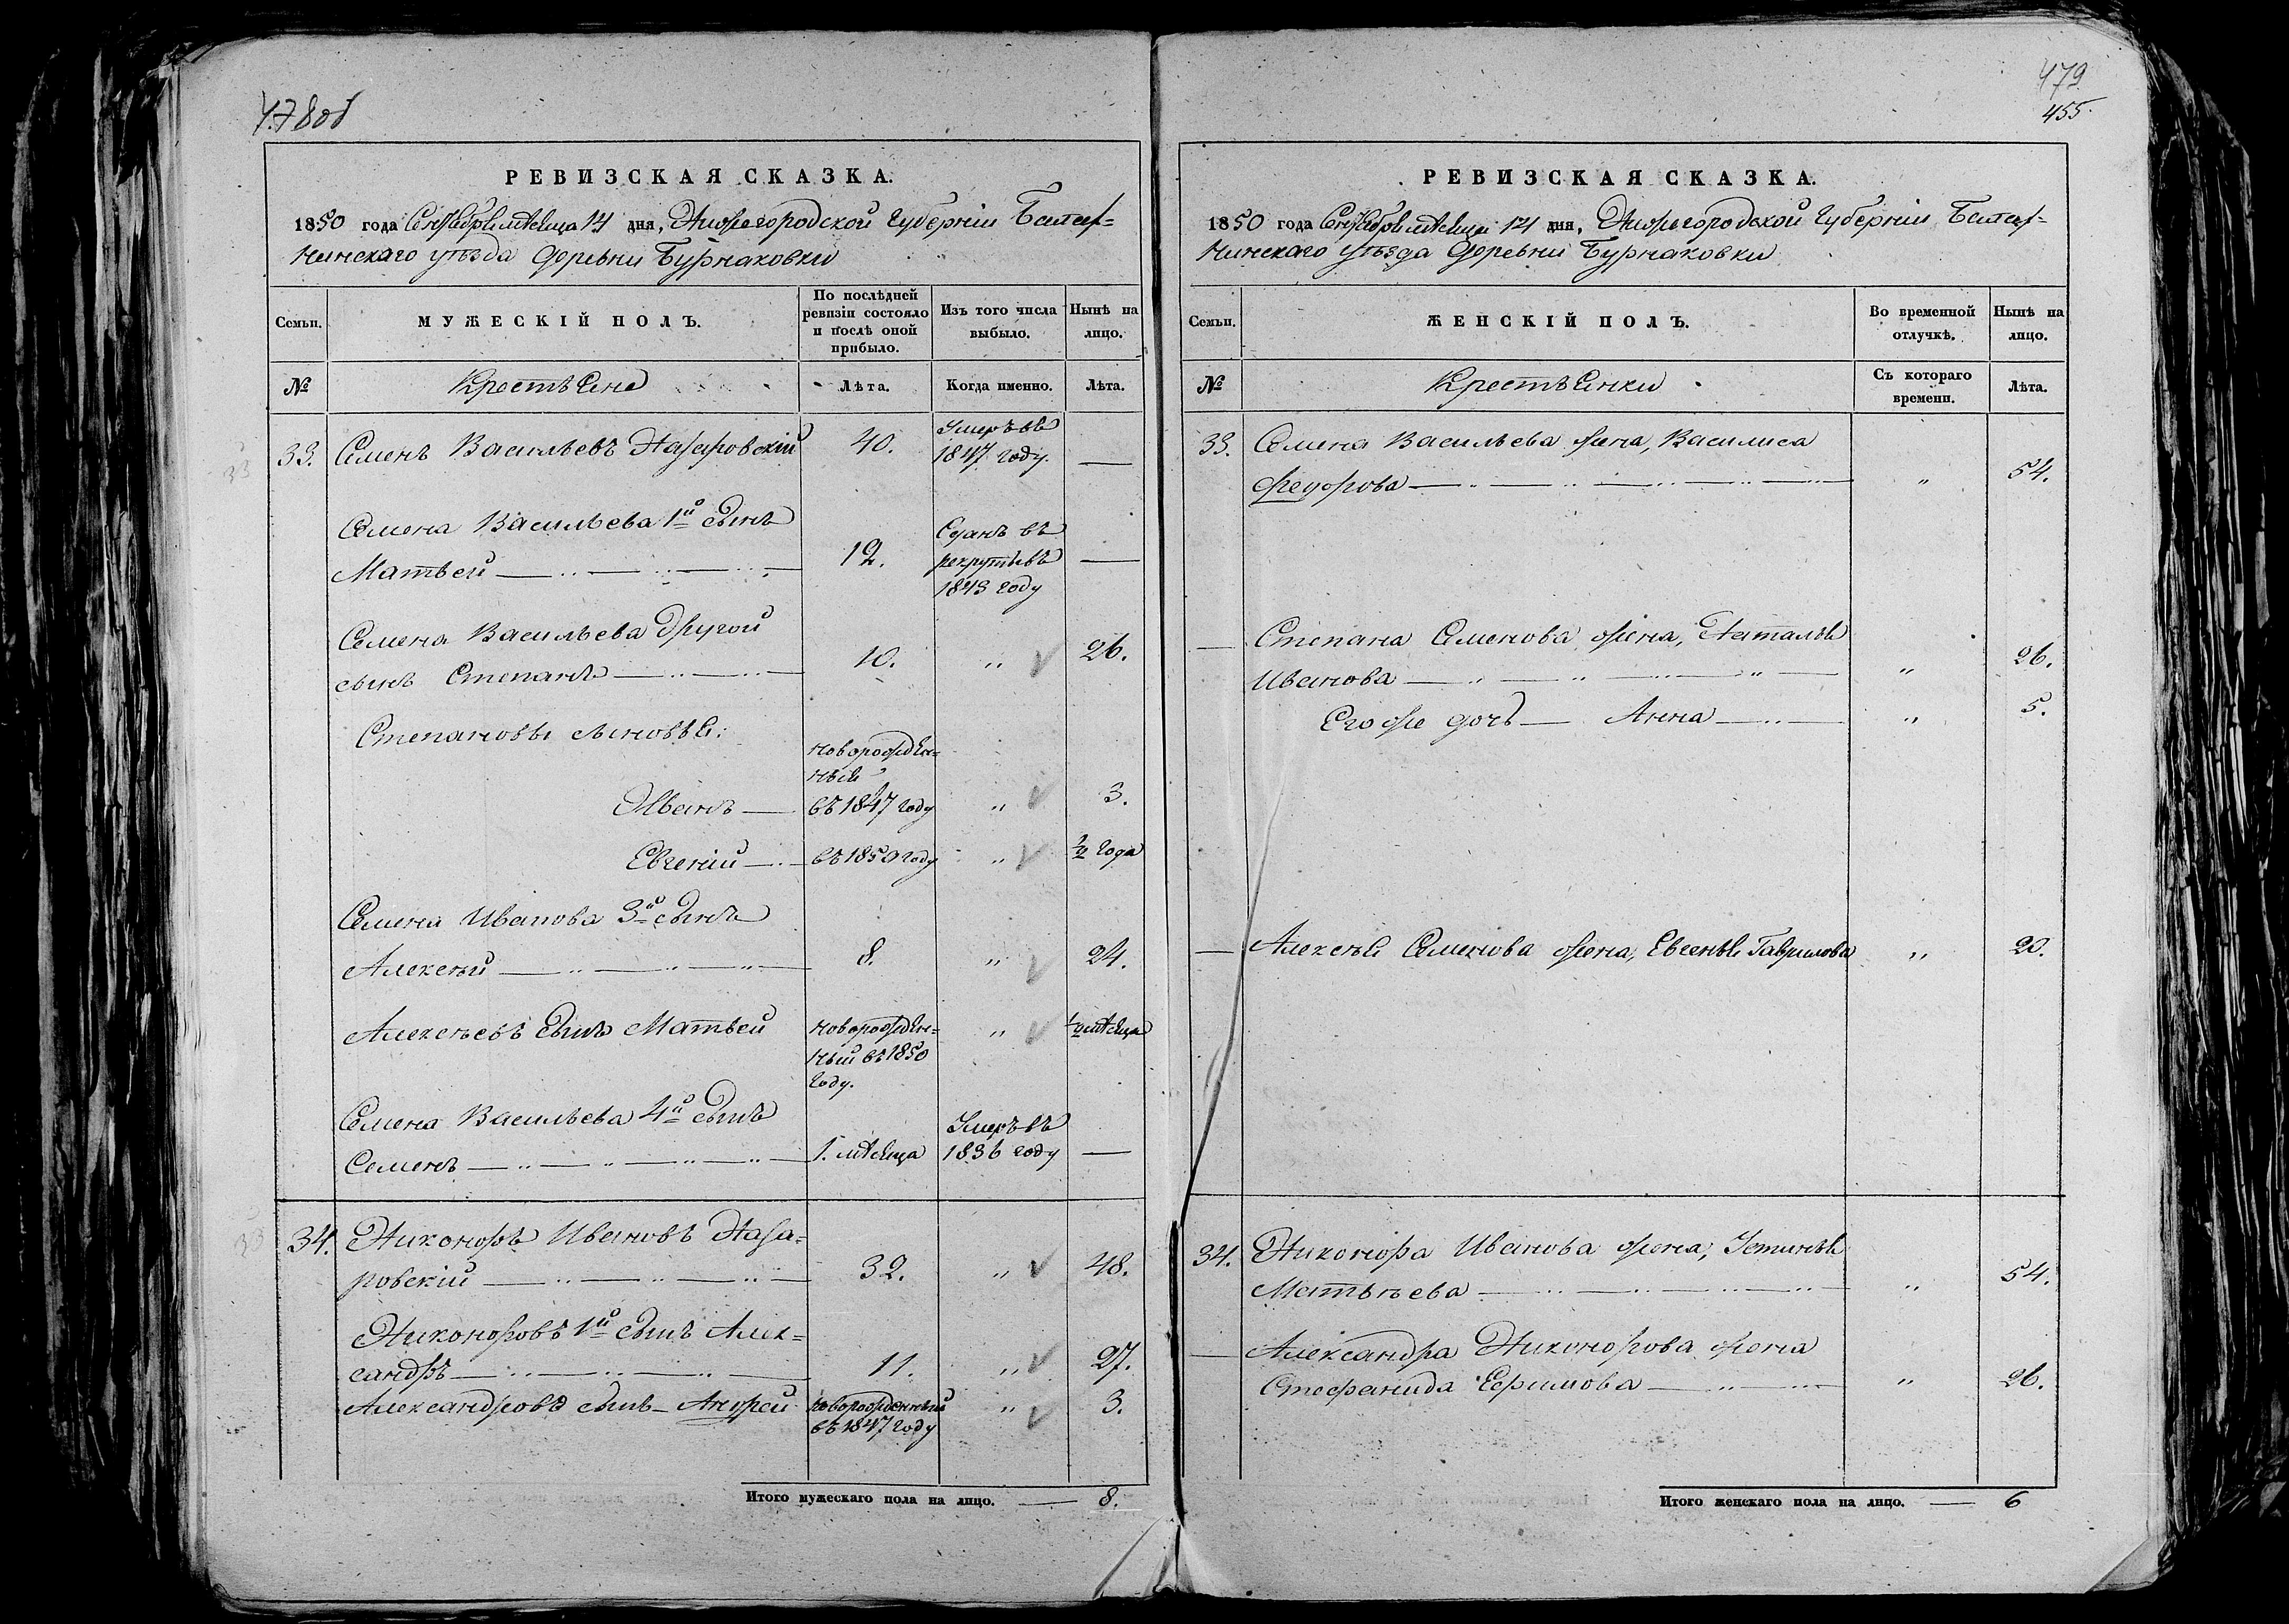 478об
РЕВИЗСКАЯ СКАЗКА.
1850 года Сентября мѣсяца 14 дня, Нижегородской Губерніи Балах-
нинскаго уѣзда Деревни Бурнаковки
Семьи.
МУЖЕСКІЙ ПОЛЪ.
По послѣдней
ревизіи состояло
и послѣ оной
прибыло.
Изъ того числа
выбыло.
Нынѣ на
лицо.
№
Крестьяне
Лѣта.
Когда именно.
Лѣта.
33.
Семенъ Васильевъ Назаровскій
40.
Умеръ въ
1847 году.
—
Семена Васильева 1й сынъ
Матвей
12.
Сданъ въ
рекруты въ
1843 году
—
Семена Васильева другой
сынъ Степанъ
10.
"
26.
Степановы сыновья:
Иванъ
новорожден-
ный
въ 1847 году
"
3.
Евгеній
въ 1850 году
"
½ года
Семена Иванова 3й сынъ
Алексѣй
8.
"
24.
Алексѣевъ сынъ Матвей
новорожден-
ный въ 1850
году.
"
½ мѣсяца
Семена Васильева 4й сынъ
Семенъ
1. мѣсяца
Умеръ въ
1836 году
—
34.
Никоноръ Ивановъ Наза-
ровскій
32.
"
48.
Никоноровъ 1й сынъ Алек-
сандръ
11.
"
27.
Александровъ сынъ Андрей
новорожденный
въ 1847 году
"
3.
Итого мужескаго пола на лицо. — 8.
479
455.
РЕВИЗСКАЯ СКАЗКА.
1850 года Сентября мѣсяца 14 дня, Нижегородской Губерніи Балах-
нинскаго уѣзда Деревни Бурнаковки
Семьи.
ЖЕНСКІЙ ПОЛЪ.
Во временной
отлучкѣ.
Нынѣ на
лицо.
№
Крестьянки
Съ котораго
времени.
Лѣта.
33.
Семена Васильева жена, Василиса
Федорова
"
54.
—
Степана Семенова жена, Наталья
Иванова
"
26.
Его же дочь — Анна
"
5.
—
Алексѣя Семенова жена, Евгенья Гаврилова
"
20.
34.
Никонора Иванова жена, Устинья
Матвѣева
"
54.
—
Александра Никонорова жена
Стефанида Ефимова
"
26.
Итого женскаго пола на лицо. — 6